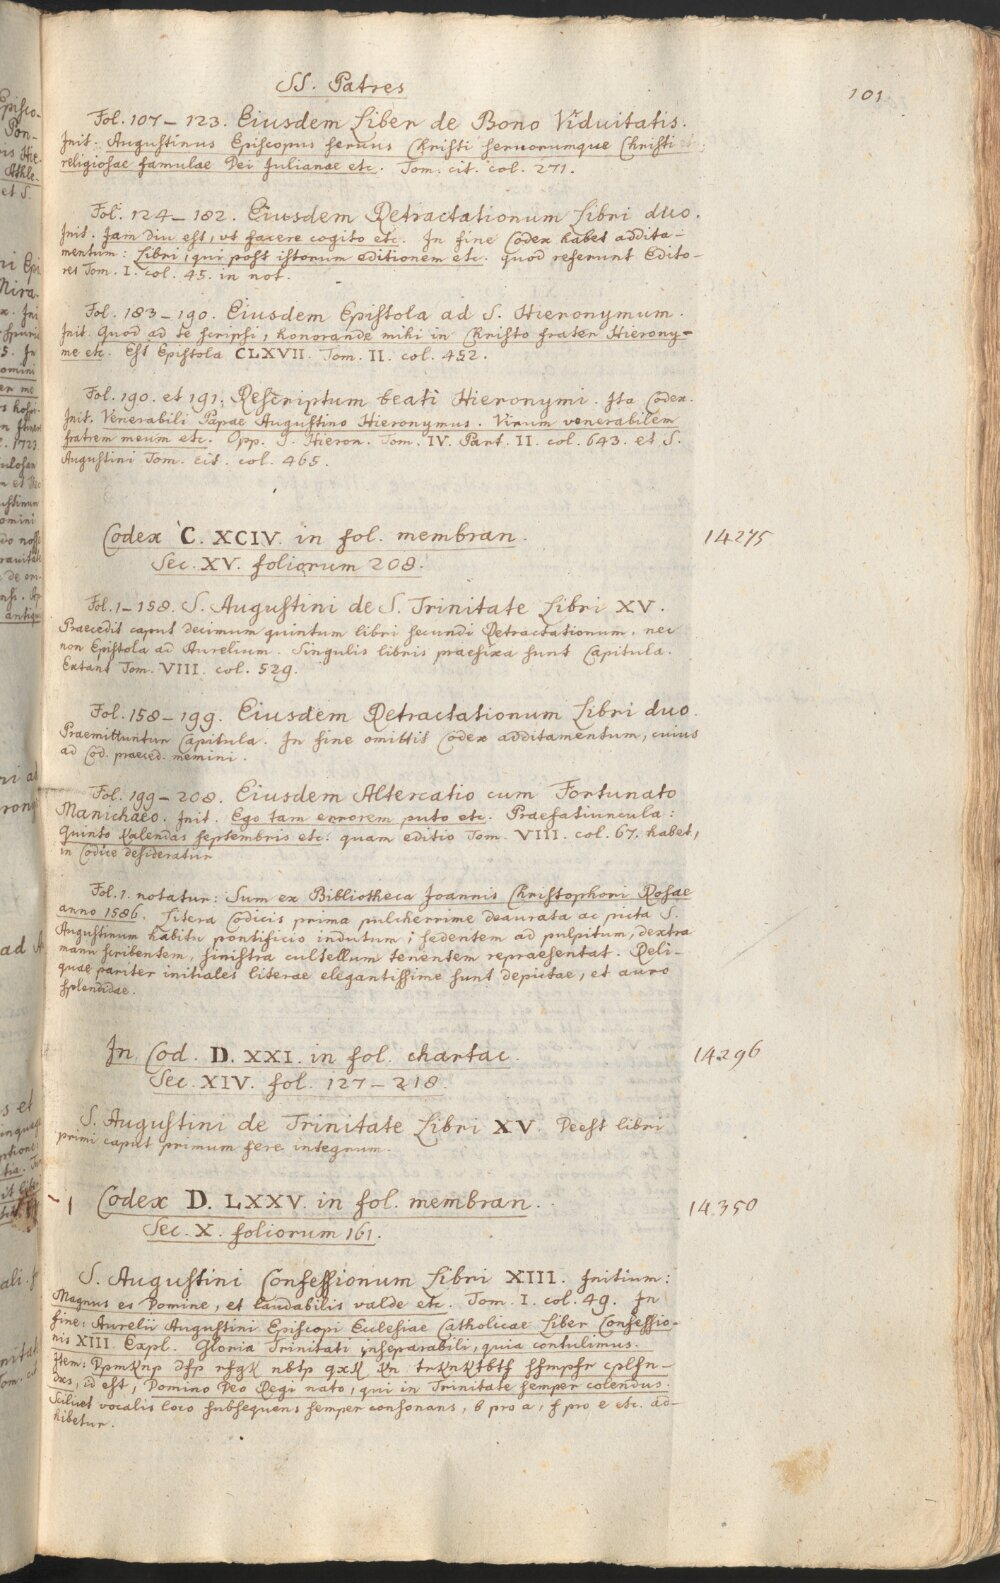 SS. Patres
101
Fol. 107 – 123. Eiusdem Liber de Bono Viduitatis.
Init. Augustinus Episcopus seruus Christi seruorumque Christi
religiosae famulae Dei Julianae etc. Tom. cit. col. 271.
Fol. 124 – 182. Eiusdem Retractationum Libri duo.
Init. Jam diu est, vt facere cogito etc. In fine Codex habet addita-
mentum: Libri, qui post istorum editionem etc. quod referunt Edito-
res Tom. I. col. 45. in not.
Fol. 183 – 190. Eiusdem Epistola ad S. Hieronymum.
Init. Quod ad te scripsi, honorande mihi in Christo frater Hierony-
me etc. Est Epistola CLXVII. Tom. II. col. 452.
Fol. 190. et 191. Rescriptum beati Hieronymi. Ita Codex.
Init. Venerabili Papae Augustino Hieronymus. Virum venerabilem
fratrem meum etc. Opp. S. Hieron. Tom. IV. Part. II. col. 643. et S.
Augustini Tom. cit. col. 465.
Codex C. XCIV. in fol. membran.
14275
Sec. XV. foliorum 208.
Fol. 1 – 158. S. Augustini de S. Trinitate Libri XV.
Praecedit caput decimum quintum libri secundi Retractationum, nec
non Epistola ad Aurelium. Singulis libris praefixa sunt Capitula.
Extant Tom. VIII. col. 529.
Fol. 158 – 199. Eiusdem Retractationum Libri duo.
Praemittuntur Capitula. In fine omittit Codex additamentum, cuius
ad Cod. praeced. memini.
Fol. 199 – 208. Eiusdem Altercatio cum Fortunato
Manichaeo. Init. Ego tam errorem puto etc. Praefatiuncula:
Quinto Kalendas septembris etc. quam editio Tom. VIII. col. 67. habet,
in Codice desideratur
Fol. 1. notatur: Sum ex Bibliotheca Joannis Christophori Rosae
anno 1586. Litera Codicis prima pulcherrime deaurata ac picta S.
Augustinum habitu pontificio indutum, sedentem ad pulpitum, dextra
manu scribentem, sinistra cultellum tenentem repraesentat. Reli-
quae pariter initiales literae elegantissime sunt depictae, et auro
splendidae.
In Cod. D. XXI. in fol. chartac.
14296
Sec. XIV. fol. 127 – 218.
S. Augustini de Trinitate Libri XV. Deest libri
primi caput primum fere integrum.
Codex D. LXXV. in fol. membran.
14350
Sec. X. foliorum 161.
S. Augustini Confessionum Libri XIII. Initium:
Magnus es Domine, et laudabilis valde etc. Tom. I. col. 49. In
fine: Aurelii Augustini Episcopi Ecclesiae Catholicae Liber Confessio-
nis XIII. Expl. Gloria Trinitati inseparabili, quia contulimus.
Item: Dpmknp dfp rfgk nbtp qxk kn trknktbtf sfmpfr cplfn-
dxs, id est, Domino Deo Regi nato, qui in Trinitate semper colendus.
Scilicet vocalis loco subsequens semper consonans, b pro a, f pro e etc. ad-
hibetur.